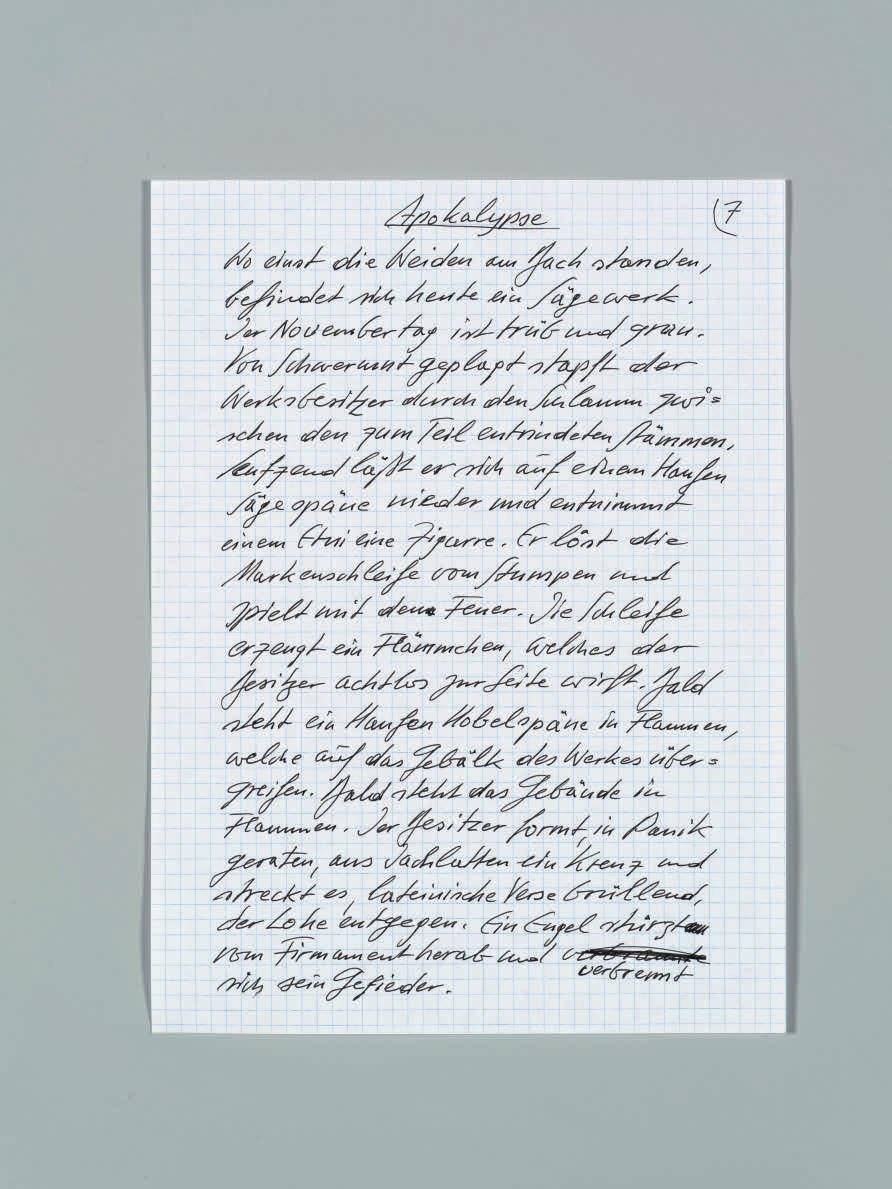 Apokalypse
(7
Wo einst die Weiden am Bach standen,
befindet sich heute ein Sägewerk.
Der Novembertag ist trüb und grau.
Von Schwermut geplagt stapft der
Werksbesitzer durch den Schlamm zwi=
schen den zum Teil entrindeten Stämmen,
Seufzend läßt er sich auf einem Haufen
Sägespäne nieder und entnimmt
einem Etui eine Zigarre. Er löst die
Markenschleife vom Stumpen und
spielt mit dem Feuer. Die Schleife
erzeugt ein Flämmchen, welches der
Besitzer achtlos zur Seite wirft. Bald
steht ein Haufen Hobelspäne in Flammen,
welche auf das Gebälk des Werkes über=
greifen. Bald steht das Gebäude in
Flammen. Der Besitzer formt, in Panik
geraten, aus Dachlatten ein Kreuz und
streckt es, lateinische Verse brüllend,
der Lohe entgegen. Ein Engel stürzt
vom Firmament herab und verbrennt
sich sein Gefieder.